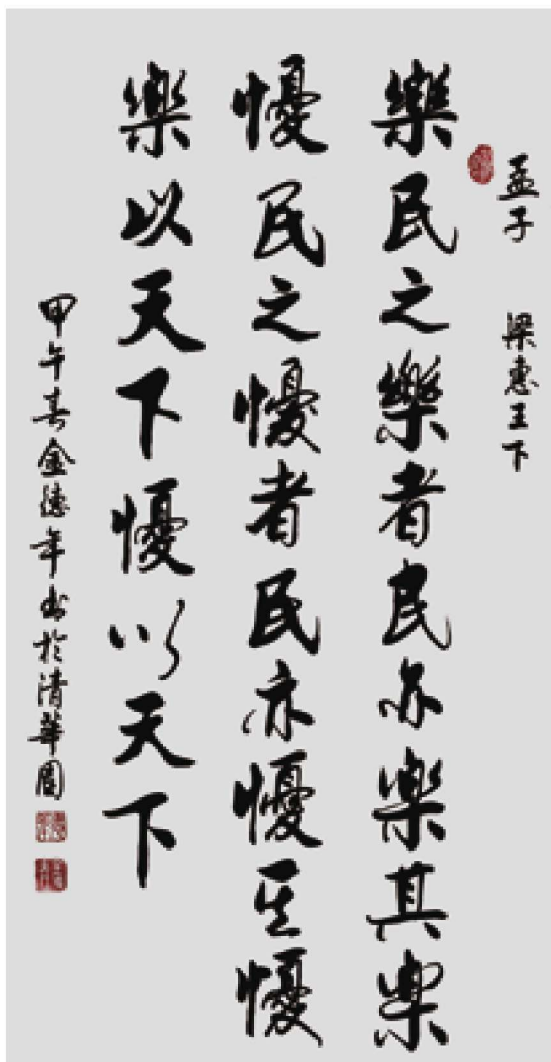 孟子 梁惠王下
樂民之樂者民亦樂其樂
懮民之懮者民亦懮其懮
樂以天下懮以天下
甲午春金德年书於清華園